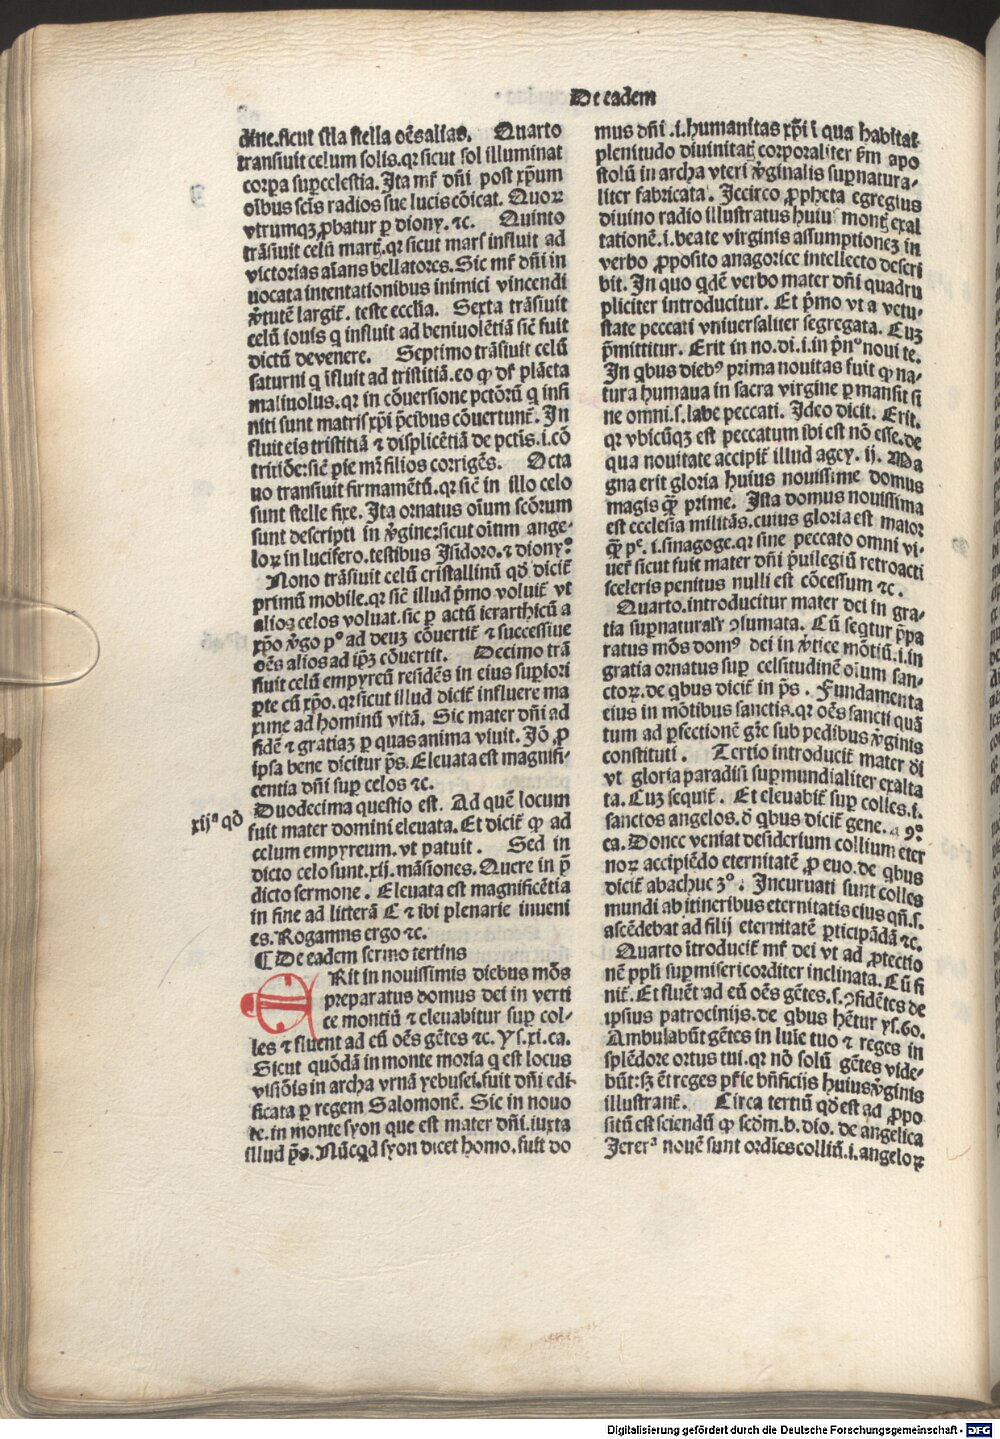 De eadem
dine.sicut illa stella oēs alias. Quarto
transiuit celum solis.qꝛ sicut sol illuminat
corpa supcelestia. Ita mr̄ dn̄i post xp̄um
oībus scīs radios sue lucis cōicat. Quoꝝ
vtrumqꝫ ꝓbatur ꝑ diony. ⁊c. Quinto
trāsiuit celū martꝭ.qꝛ sicut mars influit ad
victorias aīans bellatores. Sic mr̄ dn̄i in
uocata intentationibus inimici vincendi
v̓tutē largit᷑. teste ecclīa. Sexta trāsiuit
celū iouis q influit ad beniuolētiā sic̄ fuit
dictū de venere. Septimo trāsiuit celū
saturni q īfluit ad tristitiā.eo ꝙ dr̄ plāeta
maliuolus.qꝛ in cōuersione pctōrū q infi
niti sunt matris xp̄i p̄cibus cōuertunt᷑. In
fluit eis tristitiā ⁊ displicētiā de pctīs.i.cō
tritiōe:sic̄ pie mr̄ filios corrigēs. Octa
uo transiuit firmamētū.qꝛ sic̄ in illo celo
sunt stelle fixe. Ita ornatus oīum scōrum
sunt descripti in v̓gine:sicut oīum ange-
loꝝ in lucifero.testibus Isidoro.⁊ diony.
Nono trāsiuit celū cristallinū qd̄ dicit᷑
primū mobile.qꝛ sic̄ illud p̄mo voluit᷑ vt
alios celos voluat.sic ꝑ actū ierarthicū a
xp̄o v̓go pº ad deuꝫ cōuertit᷑ ⁊ successiue
oēs alios ad ip̄ꝫ cōuertit. Decimo trā
siuit celū empyreū residēs in eius supiori
ꝑte cū xp̄o.qꝛ sicut illud dicit᷑ influere ma
xime ad hominū vitā. Sic mater dn̄i ad
fidē ⁊ gratiaꝫ ꝑ quas anima viuit. Iō ꝓ
ipsa bene dicitur ps̄. Eleuata est magnifi-
centia dn̄i sup celos ⁊c.
xijª qō
Duodecima questio est. Ad quē locum
fuit mater domini eleuata. Et dicit᷑ ꝙ ad
celum empyreum. vt patuit. Sed in
dicto celo sunt.xij.māsiones. Quere in p̄
dicto sermone. Eleuata est magnificētia
in fine ad litterā C ⁊ ibi plenarie inueni
es. Rogamns ergo ⁊c.
¶ De eadem sermo tertins
ERit in nouissimis diebus mōs
preparatus domus dei in verti
ce montiū ⁊ eleuabitur sup col-
les ⁊ fluent ad eū oēs gētes ⁊c. Ys.xi.ca.
Sicut quōdā in monte moria q est locus
visiōis in archa vrnā yebusei.fuit dn̄i edi-
ficata ꝑ regem Salomonē. Sic in nouo
te.in monte syon que est mater dn̄i.iuxta
illud ps̄. Nūcqd syon dicet homo.fuit do
mus dn̄i .i.humanitas xp̄i ī qua habitat
plenitudo diuinitatꝭ corporaliter s̄m apo
stolū in archa vteri v̓ginalis supnatura-
liter fabricata. Iccirco ꝓpheta egregius
diuino radio illustratus huiu montꝭ exal
tationē.i.beate virginis assumptionez in
verbo ꝓposito anagorice intellecto descri
bit. In quo qdē verbo mater dn̄i quadru
pliciter introducitur. Et p̄mo vt a vetu-
state peccati vniuersaliter segregata. Cuꝫ
p̄mittitur. Erit in no.di.i.in p̄nº noui te.
In qbus diebꝰ prima nouitas fuit ꝙ na-
tura humaua in sacra virgine ꝑmansit si
ne omni.s.labe peccati. Ideo dicit. Erit.
qꝛ vbicūqꝫ est peccatum ibi est nō esse.de
qua nouitate accipit᷑ illud agey. ij. Ma
gna erit gloria huius nouissime domus
magis qꝫ prime. Ista domus nouissima
est ecclesia militās.cuius gloria est maior
qꝫ pᵉ. i.sinagoge.qꝛ sine peccato omni vi-
uet᷑ sicut fuit mater dn̄i p̄uilegiū retroacti
sceleris penitus nulli est cōcessum ⁊c.
Quarto.introducitur mater dei in gra-
tia supnaturalr̄ ꝯsumata. Cū seqtur p̄pa
ratus mōs domꝰ dei in v̓tice mōtiū.i.in
gratia ornatus sup celsitudinē oīum san-
ctoꝝ.de qbus dicit᷑ in ps̄. Fundamenta
eius in mōtibus sanctis.qꝛ oēs sancti quā
tum ad ꝑfectionē gr̄e sub pedibus v̓ginis
constituti. Tertio introducit᷑ mater d̄i
vt gloria paradisi supmundialiter exalta
ta. Cuꝫ sequit᷑. Et eleuabit᷑ sup colles.i.
sanctos angelos.d̄ qbus dicit᷑ gene. 49.
ca. Donec veniat desiderium collium eter
noꝝ accipiēdo eternitatē ꝓ euo.de qbus
dicit᷑ abachuc 3º. Incuruati sunt colles
mundi ab itineribus eternitatis eius qn̄.s.
ascēdebat ad filij eternitatē ꝑticipādā ⁊c.
Quarto ītroducit᷑ mr̄ dei vt ad ꝓtectio
nē ppli supmisericorditer inclinata. Cū fi
nit᷑. Et fluēt ad eū oēs gētes.s.ꝯfidētes de
ipsius patrocinijs.de qbus hētur ys.60.
Ambulabūt gētes in luīe tuo ⁊ reges in
splēdore ortus tui.qꝛ nō solū gētes vide-
būt:sꝫ ēt reges pr̄ie bn̄ficijs huius v̓ginis
illustrant᷑. Circa tertiū qd̄ est ad ꝓpo
sitū est sciendū ꝙ scdm.b.dio. de angelica
Ierer.ª nouē sunt ordīes colliū.i.angeloꝝ
Digitalisierung gefördert durch die Deutsche Forschungsgemeinschaft - DFG